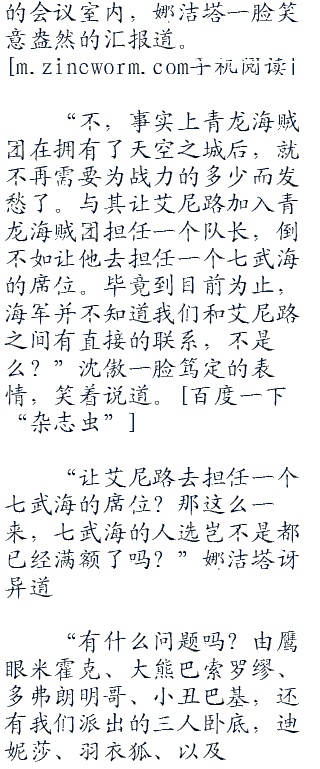 的会议室内，娜洁塔一脸笑
意盎然的汇报道。
[m.zincworm.com手机阅读]
“不，事实上青龙海贼
团在拥有了天空之城后，就
不再需要为战力的多少而发
愁了。与其让艾尼路加入青
龙海贼团担任一个队长，倒
不如让他去担任一个七武海
的席位。毕竟到目前为止，
海军并不知道我们和艾尼路
之间有直接的联系，不是
么？”沈傲一脸笃定的表
情，笑着说道。[百度一下
“杂志虫”]
“让艾尼路去担任一个
七武海的席位？那这么一
来，七武海的人选岂不是都
已经满额了吗？”娜洁塔讶
异道
“有什么问题吗？由鹰
眼米霍克、大熊巴索罗缪、
多弗朗明哥、小丑巴基，还
有我们派出的三人卧底，迪
妮莎、羽衣狐、以及